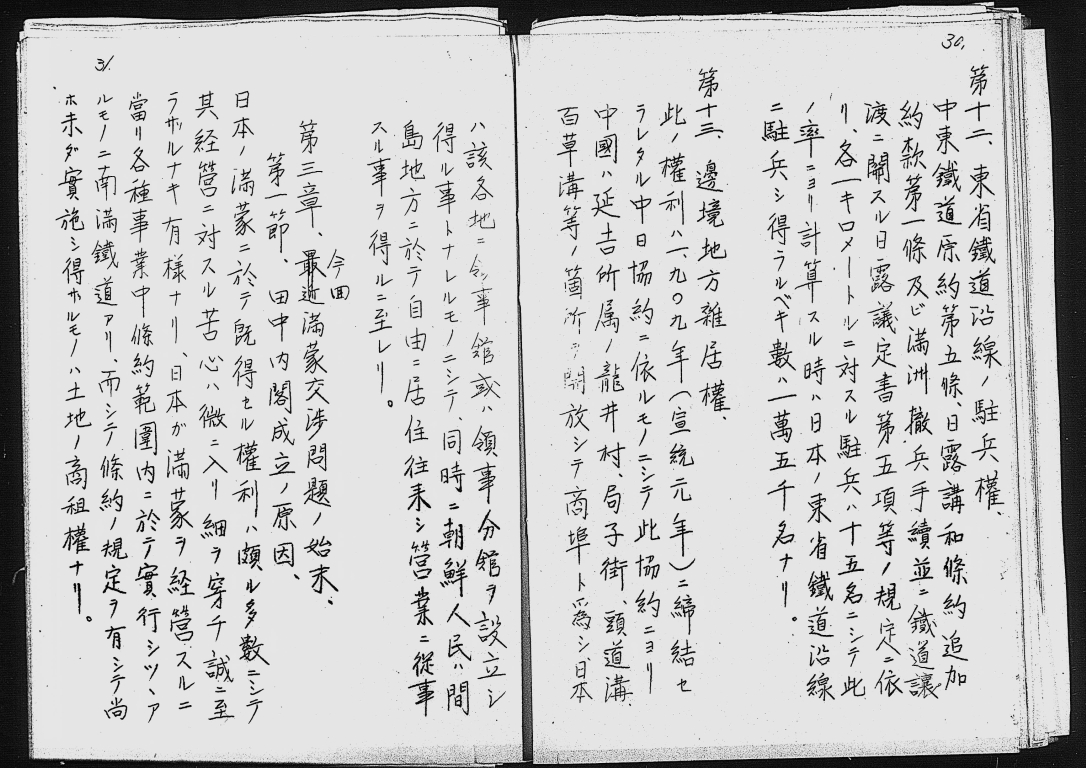 30.
第十二、東省鐵道沿線ノ駐兵權、
中東鐵道原約第五條、日露講和條約追加
約款第一條及ビ満洲撤兵手續並ニ鐵道讓
渡ニ關スル日露議定書第五項等ノ規定ニ依
リ、各一キロメートルニ対スル駐兵ハ十五名ニシテ此
ノ率ニヨリ計算スル時ハ日本ノ東省鐵道沿線
ニ駐兵シ得ラルベキ數ハ一萬五千名ナリ。
第十三、邊境地方雜居權、
此ノ權利ハ一、九〇九年(宣統元年)ニ締結セ
ラレタル中日協約ニ依ルモノニシテ此協約ニヨリ
中國ハ延吉所属ノ龍井村、局子街、頭道溝
百草溝等ノ箇所ヲ開放シテ商埠ト爲シ、日本
ハ該各地ニ領事館或ハ領事分館ヲ設立シ
得ル事トナレルモノニシテ、同時ニ朝鮮人民ハ間
島地方ニ於テ自由ニ居住往来シ營業ニ従事
スル事ヲ得ルニ至レリ。
今回
第三章、最近満蒙交渉問題ノ始末、
第一節、田中内閣成立ノ原因、
日本ノ満蒙ニ於テ既得セル權利ハ頗ル多數ニシテ
其経營ニ対スル苦心ハ微ニ入リ細ヲ穿チ誠ニ至
ラザルナキ有様ナリ、日本ガ満蒙ヲ経營スルニ
當リ各種事業中條約範圍内ニ於テ實行シツヽア
ルモノニ南満鐵道アリ、而シテ條約ノ規定ヲ有シテ尚
ホ未ダ實施シ得ザルモノハ土地ノ商租權ナリ。
31.